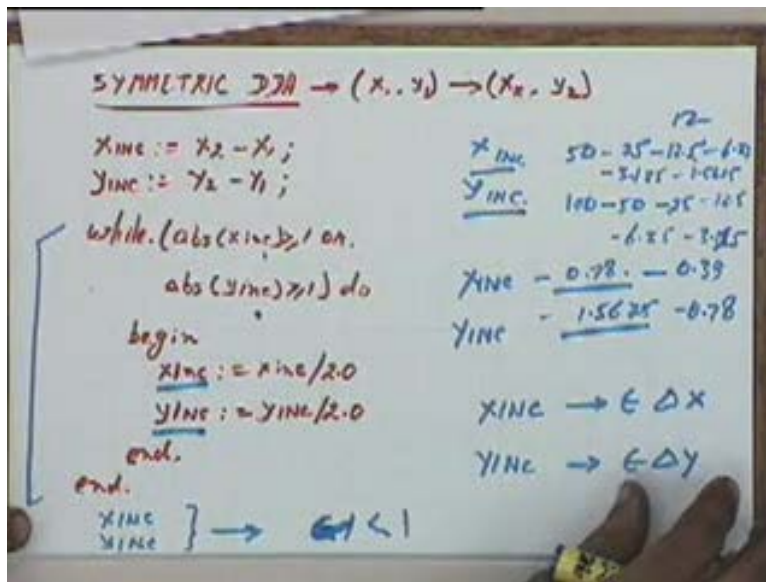 SYMMETRIC DDA → (X1, Y1) → (X2, Y2)
XINC := X2 - X1;
YINC := Y2 - Y1;
while (abs(xinc)≥1 or
abs(yinc)≥1) do
begin
XINC := xinc/2.0
YINC := YINC/2.0
end.
end.
XINC
YINC } → < 1
12
XINC 50-25-12.5-6.25
-3.125-1.5625
YINC. 100-50-25-12.5
-6.25-3.125
XINC - 0.78. - 0.39
YINC - 1.5625 - 0.78
XINC → ∈ Δ X
YINC → ∈ Δ Y